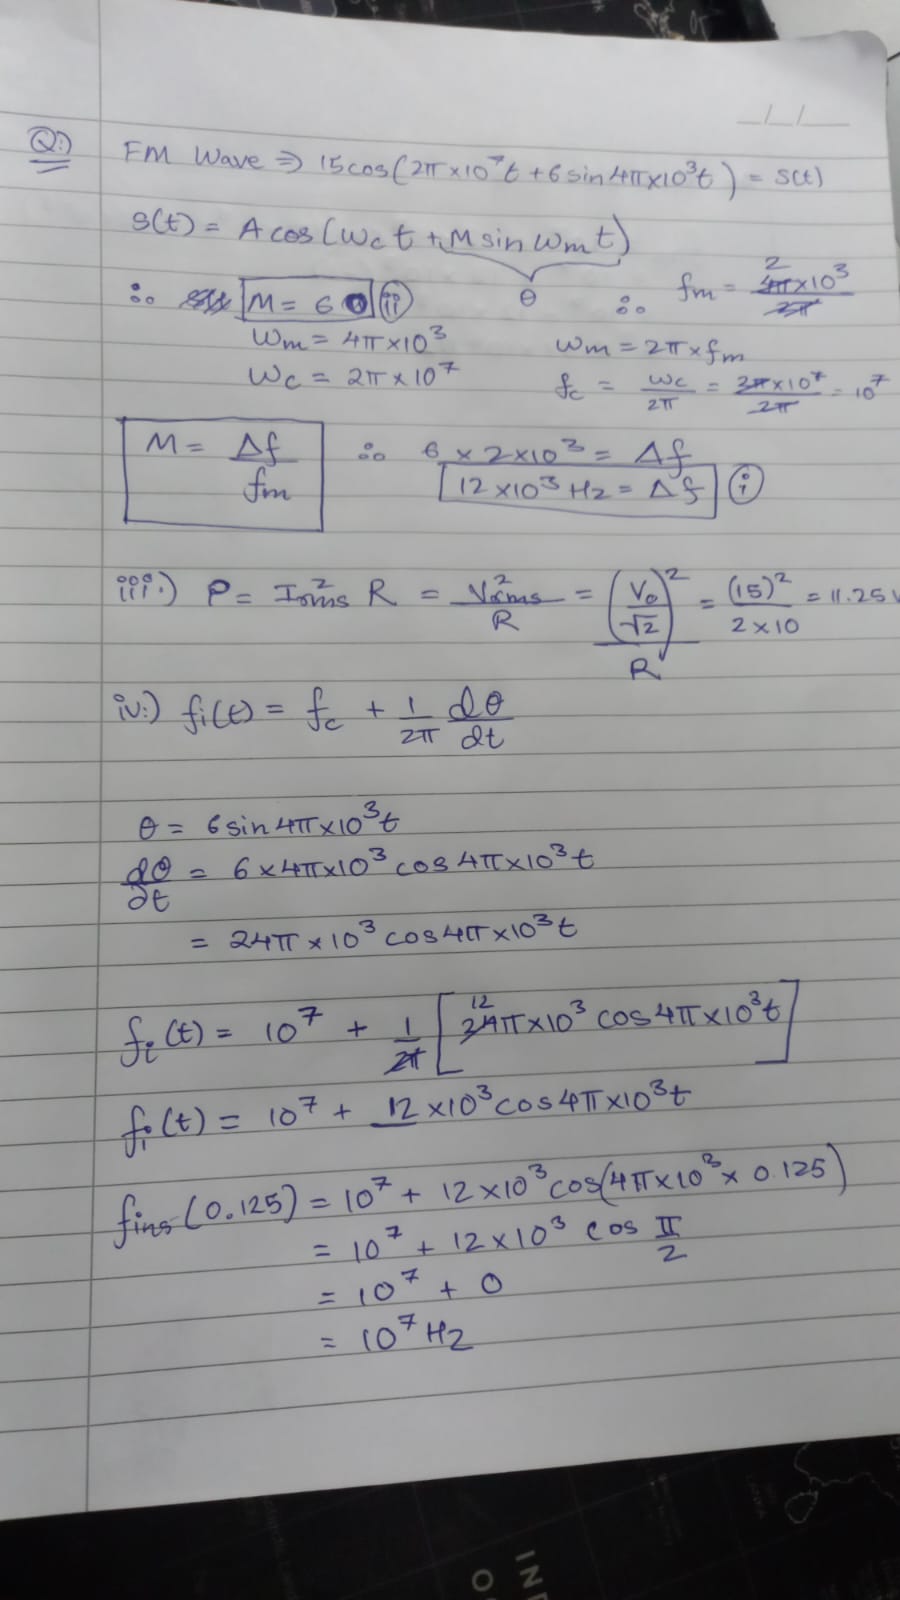 Q:) FM Wave ⇒ 15cos(2π×10⁷t + 6sin4π×10³t) = s(t)
s(t) = A cos(Wc t + M sin Wm t)
θ
∴ M = 6 (ii)
∴ fm = 4π×10³/2π 2
Wm = 4π×10³
Wm = 2π×fm
Wc = 2π×10⁷
fc = Wc/2π = 2π×10⁷/2π = 10⁷
M = Δf/fm
∴ 6×2×10³ = Δf
12×10³ Hz = Δf (i)
iii.) P = Irms² R = Vrms²/R = (Vo/√2)²/R = (15)²/2×10 = 11.25
iv.) fi(t) = fc + 1/2π dθ/dt
θ = 6sin4π×10³t
dθ/dt = 6×4π×10³ cos4π×10³t
= 24π×10³ cos4π×10³t
fi(t) = 10⁷ + 1/2π [24π×10³ cos4π×10³t] 12
fi(t) = 10⁷ + 12×10³cos4π×10³t
fins(0.125) = 10⁷ + 12×10³cos(4π×10³×0.125)
= 10⁷ + 12×10³ cos π/2
= 10⁷ + 0
= 10⁷ Hz
IN
O